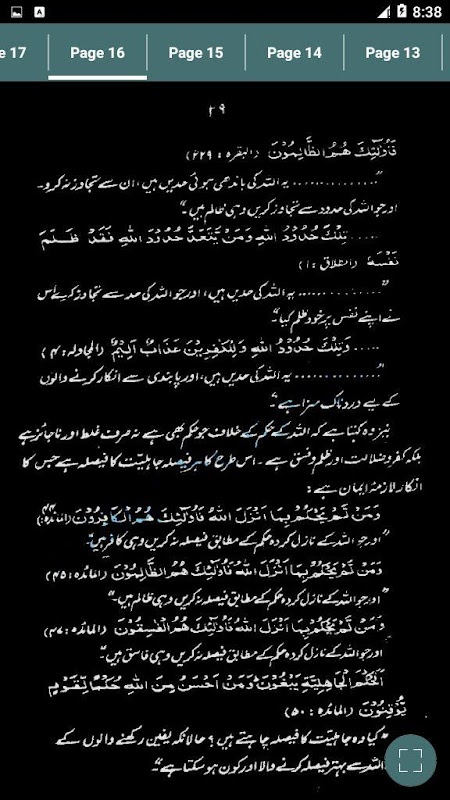 8:38
e 17 Page 16 Page 15 Page 14 Page 13
۲۹
فَأُولٰٓئِكَ هُمُ الظَّالِمُوْنَ (البقرہ: ۲۲۹)
"............... یہ اللہ کی باندھی ہوئی حدیں ہیں، ان سے تجاوز نہ کرو۔
اور جو اللہ کی حدود سے تجاوز کریں وہی ظالم ہیں۔"
..... تِلْكَ حُدُوْدُ اللهِ وَمَنْ يَّتَعَدَّ حُدُوْدَ اللهِ فَقَدْ ظَلَمَ
نَفْسَهٗ (الطلاق: ۱)
"............... یہ اللہ کی حدیں ہیں، اور جو اللہ کی حد سے تجاوز کرے اُس
نے اپنے نفس پر خود ظلم کیا۔"
..... وَتِلْكَ حُدُوْدُ اللهِ وَلِلْكٰفِرِيْنَ عَذَابٌ اَلِيْمٌ (المجادلہ: ۴)
"............... یہ اللہ کی حدیں ہیں، اور پابندی سے انکار کرنے والوں
کے لیے دردناک سزا ہے۔"
نیز وہ کہتا ہے کہ اللہ کے حکم کے خلاف جو حکم بھی ہے نہ صرف غلط اور ناجائز ہے
بلکہ کفر و ضلالت اور ظلم و فسق ہے۔ اس طرح کا ہر فیصلہ جاہلیت کا فیصلہ ہے جس کا
انکار لازمۂ ایمان ہے:
وَمَنْ لَّمْ يَحْكُمْ بِمَا اَنْزَلَ اللهُ فَأُولٰٓئِكَ هُمُ الْكَافِرُوْنَ (المائدہ: ۴۴)
"اور جو اللہ کے نازل کردہ حکم کے مطابق فیصلہ نہ کریں وہی کافر ہیں۔"
وَمَنْ لَّمْ يَحْكُمْ بِمَا اَنْزَلَ اللهُ فَأُولٰٓئِكَ هُمُ الظَّالِمُوْنَ (المائدہ: ۴۵)
"اور جو اللہ کے نازل کردہ حکم کے مطابق فیصلہ نہ کریں وہی ظالم ہیں۔"
وَمَنْ لَّمْ يَحْكُمْ بِمَا اَنْزَلَ اللهُ فَأُولٰٓئِكَ هُمُ الْفٰسِقُوْنَ (المائدہ: ۴۷)
اور جو اللہ کے نازل کردہ حکم کے مطابق فیصلہ نہ کریں وہی فاسق ہیں۔"
اَفَحُكْمَ الْجَاهِلِيَّةِ يَبْغُوْنَ وَمَنْ اَحْسَنُ مِنَ اللهِ حُكْمًا لِّقَوْمٍ
يُّوْقِنُوْنَ (المائدہ: ۵۰)
"کیا وہ جاہلیت کا فیصلہ چاہتے ہیں؟ حالانکہ یقین رکھنے والوں کے
اللہ سے بہتر فیصلہ کرنے والا اور کون ہو سکتا ہے"